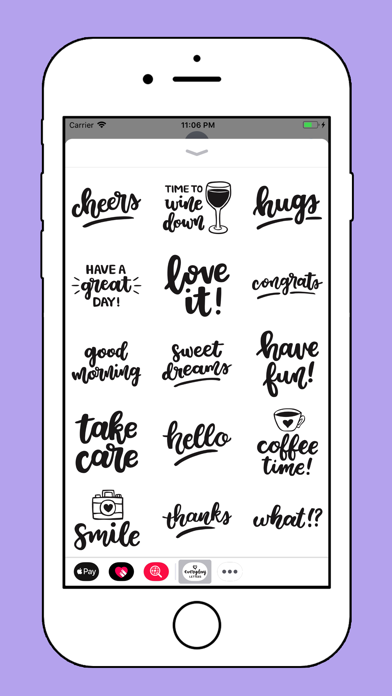 Carrier 11:06 PM
cheers
TIME TO
wine
down
hugs
HAVE A
great
DAY!
love
it!
congrats
good
morning
sweet
dreams
have
fun!
take
care
hello
coffee
time!
smile
thanks
what!?
Pay
everyday
LETTERS